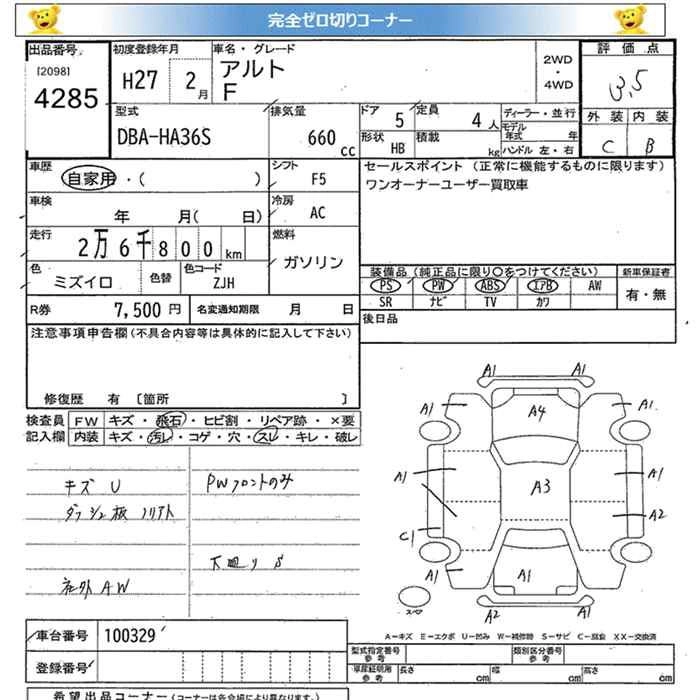 完全ゼロ切りコーナー
出品番号
[2098]
4285
初度登録年月
H27 2月
車名・グレード
アルト
F
2WD
・
4WD
評価点
3.5
外装 内装
C B
型式
DBA-HA36S
排気量
660 cc
ドア 5
定員 4人
形状 HB
積載 kg
ディーラー・並行
モデル年式 年
ハンドル 左・右
車歴
自家用・( )
シフト
F5
車検
年 月( 日)
冷房
AC
走行
2万6千800km
燃料
ガソリン
色
ミズイロ
色替
色コード
ZJH
R券 7,500円
名変通知期限 月 日
セールスポイント (正常に機能するものに限ります)
ワンオーナーユーザー買取車
装備品(純正品に限り○をつけてください)
新車保証書
PS PW ABS エアB AW
SR ナビ TV カワ
有・無
後日品
注意事項申告欄(不具合内容等は具体的に記入して下さい)
修復歴 有 [箇所 ]
検査員
記入欄
FW キズ・飛石・ヒビ割・リペア跡・×要
内装 キズ・汚レ・コゲ・穴・スレ・キレ・破レ
キズ U
PWフロントのみ
ダッシュ板 ノリアト
下廻り S
社外 AW
A1 A1
A1 A4 A1
A1 A3 A1
A2
C1
A1 A1 A1
スペア
A2 A1
A-キズ E-エクボ U-凹み W-補修跡 S-サビ C-腐食 XX-交換済
車台番号 100329
登録番号
型式指定番号
参考
類別区分番号
参考
車庫証明用
参考
長さ cm 幅 cm 高さ cm
希望出品コーナー(コーナーは各会場により異なります。)